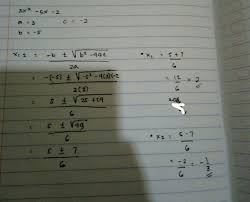 3x² - 5x - 2
a = 3 c = -2
b = -5
x₁ ± = -b ± √b² - 4ac
2a
= -(-5) ± √-5² - 4(3)(-2
2(3)
= 5 ± √25 + 24
6
= 5 ± √49
6
= 5 ± 7
6
• x₁ = 5 + 7
6
12
6
= 2
• x₂ = 5 - 7
6
= -2
6
= -1
3